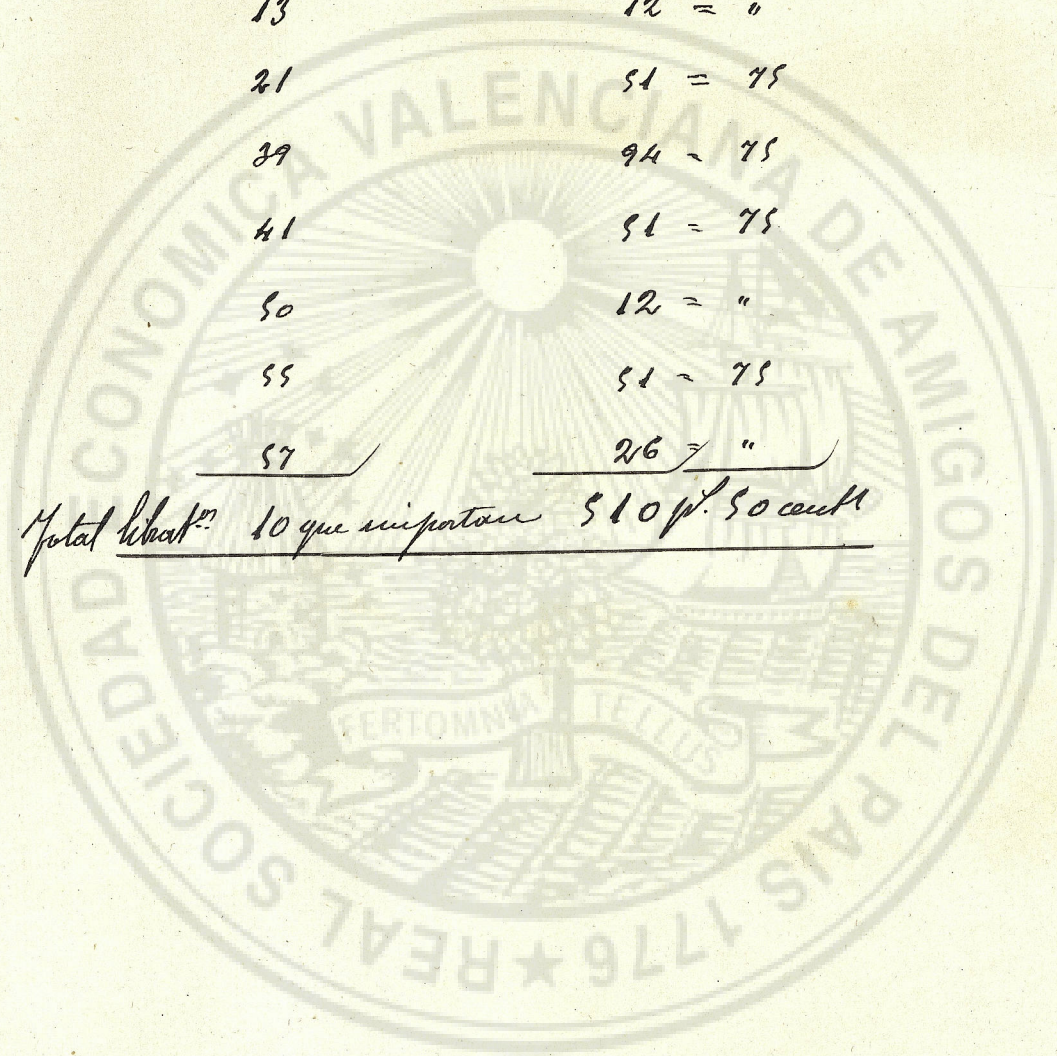 13 12 = "
21 51 = 75
39 94 = 75
41 51 = 75
50 12 = "
55 51 = 75
57 26 = "
Total librat.es 10 que importan 510 pt. 50 cents
REAL SOCIEDAD ECONOMICA VALENCIANA DE AMIGOS DEL PAIS 1776 ★
FERT OMNIA TELLUS